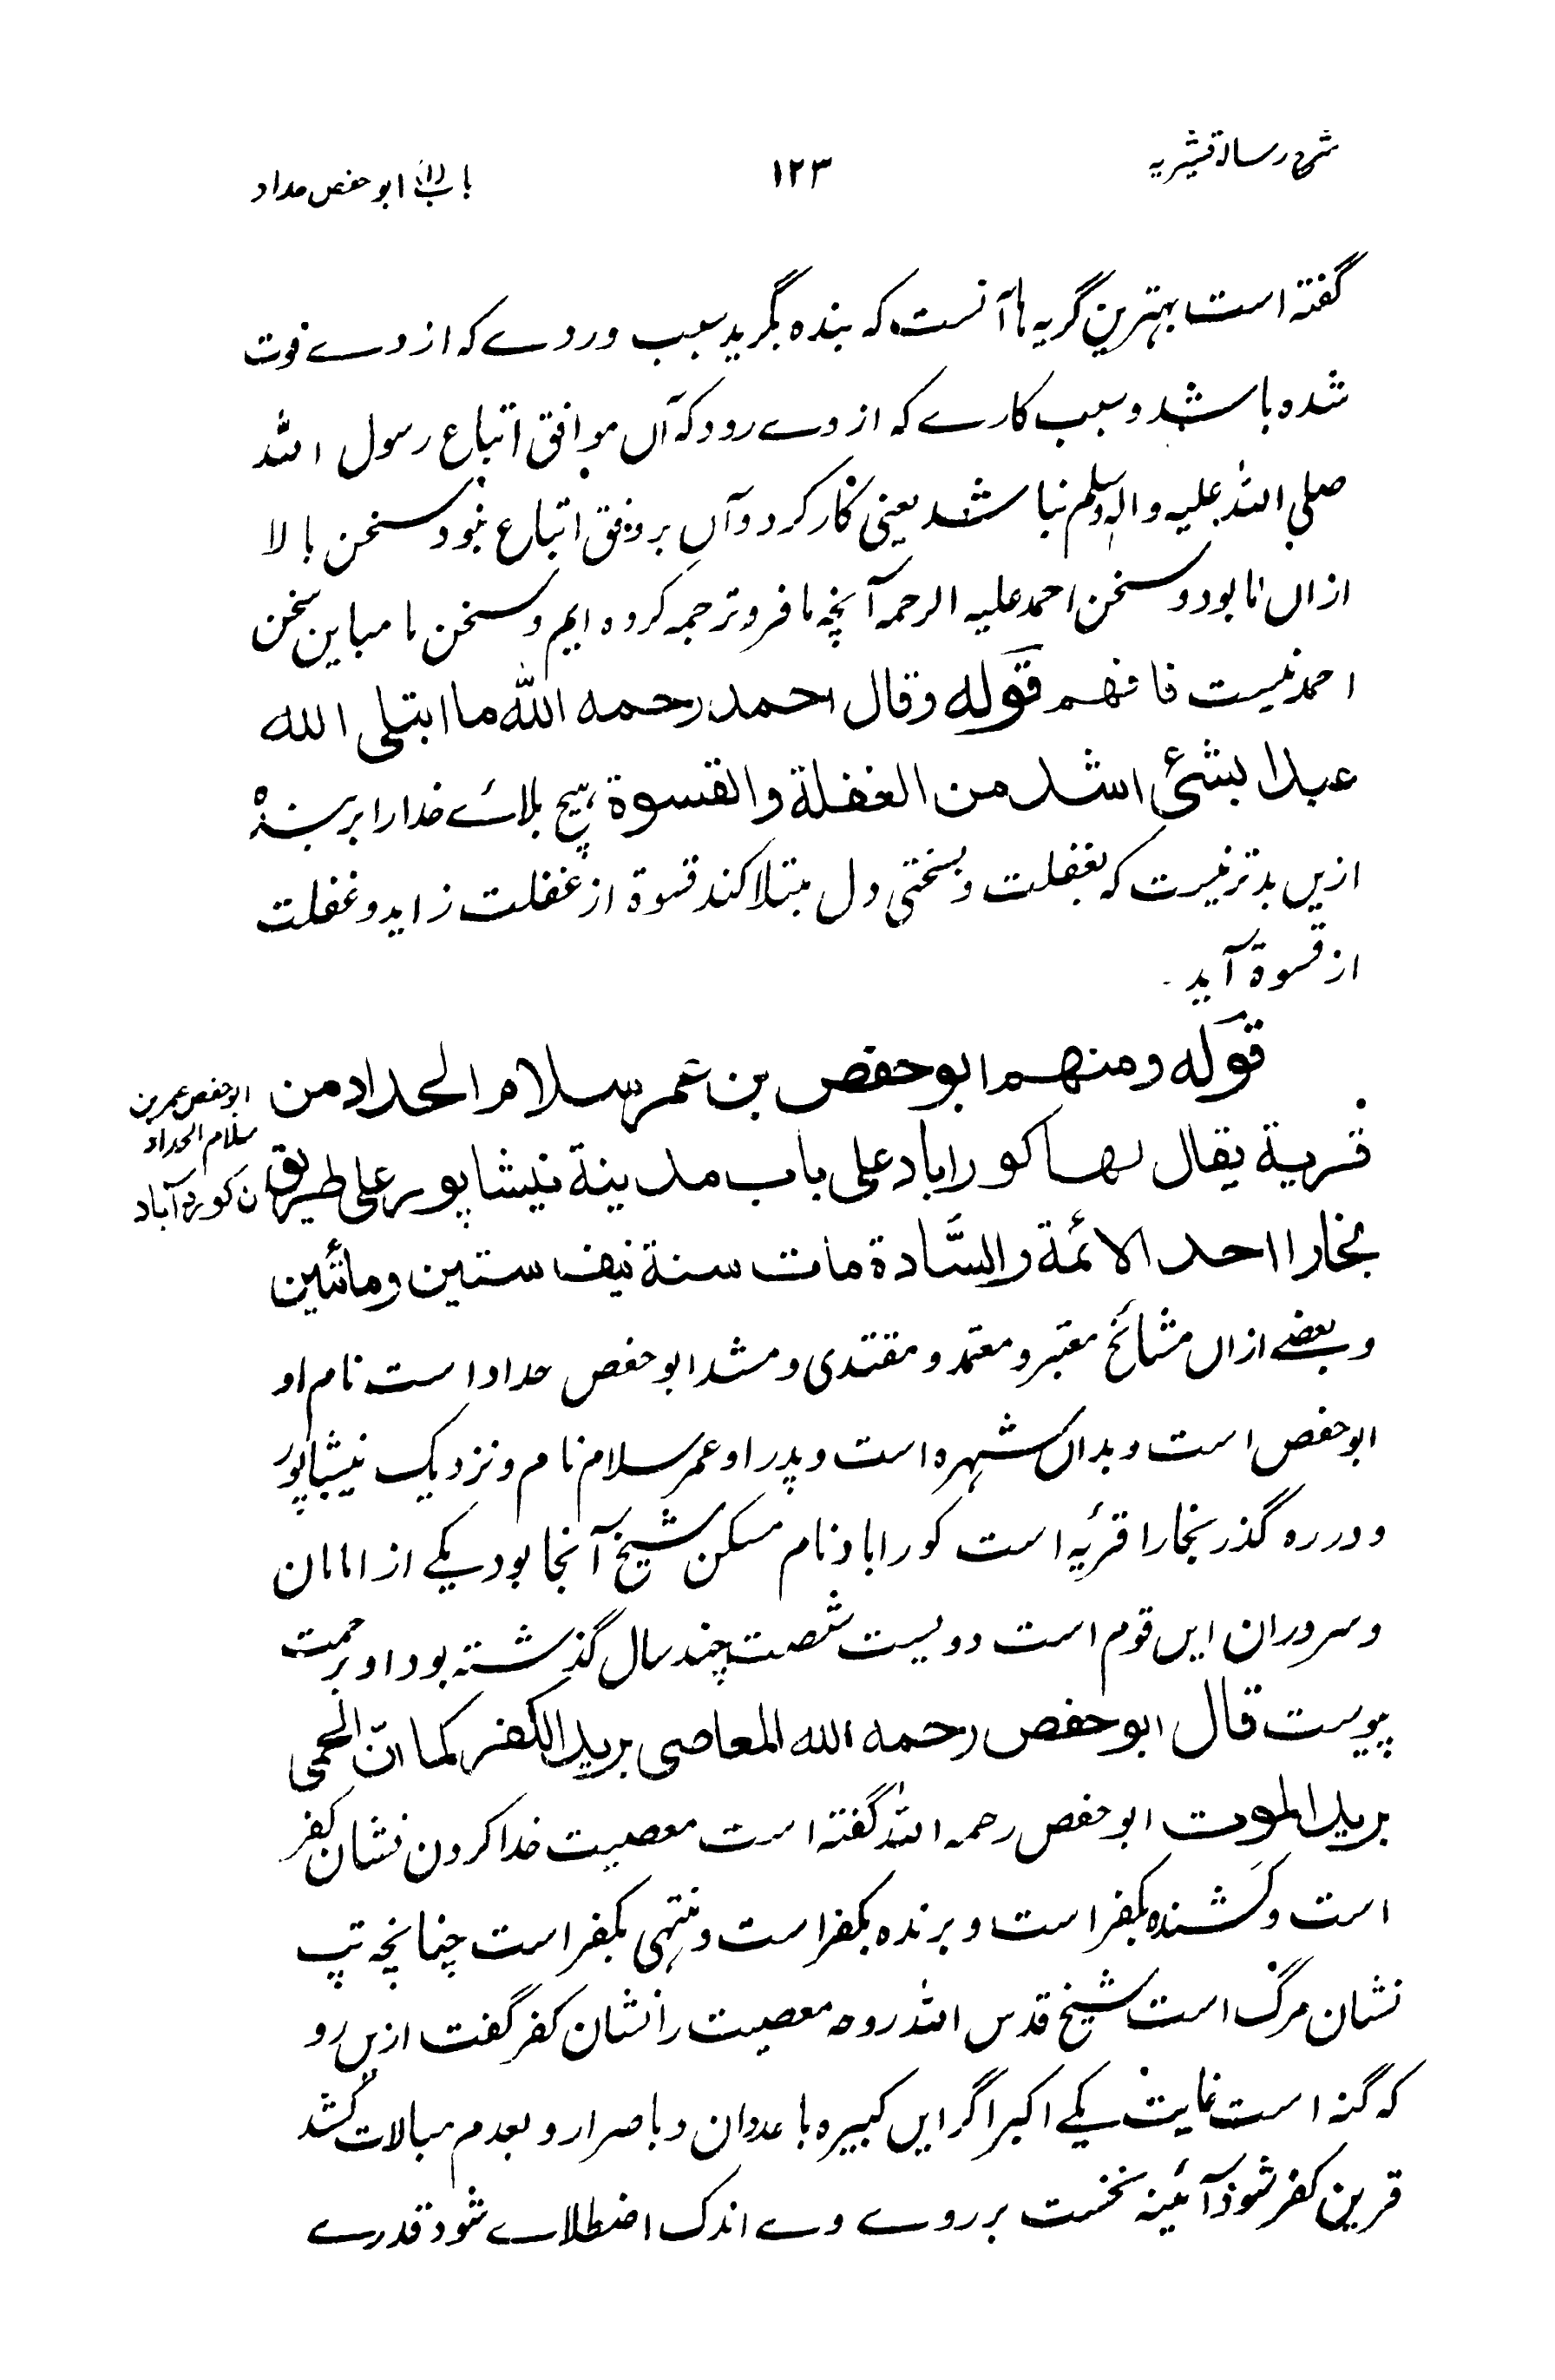 شرح رسالہ قشیریہ
۱۲۳
باب ابو حفص حداد
گفتہ است بہترین گریہ ہا آنست کہ بندہ بگرید بسبب وردے کہ از وے فوت
شدہ باشد و بسبب کارے کہ از وے رود کہ آں موافق اتباع رسول اللہ
صلی اللہ علیہ والہ وسلم نباشد یعنی کار کرد و آں بر وفق اتباع نبود و سخن بالا
ازاں ما بود و سخن احمد علیہ الرحمہ آنچہ ما فرو ترجمہ کردہ ایم و سخن ما مباین سخن
احمد نیست فافہم قولہ وقال احمد رحمہ اللہ ما ابتلی اللہ
عبدا بشئ اشد من الغفلة والقسوة ہیچ بلائے خدا را بر بندہ
ازیں بدتر نیست کہ بغفلت و بسختی دل مبتلا کند قسوة از غفلت زاید و غفلت
از قسوة آید۔
قوله ومنهم ابو حفص بن عمر سلام الحداد من
ابو حفص عمر بن
سلام الحداد
قرية يقال لها كوراباد على باب مدينة نيشاپور على طريق
ن کورد آباد
بخارا احد الائمة والسَّادة مات سنة نيف ستين ومائتين
و بعضے ازاں مشائخ معتبر و معتمد و مقتدی و مشد ابو حفص حداد است نام او
ابو حفص است و بداں شہرہ است و پدر او عمر سلام نام و نزدیک نیشاپور
و در رہ گذر بخارا قریہ است کوراباد نام مسکن شیخ آنجا بود یکے از امامان
و سروران ایں قوم است دویست شصت چند سال گذشتہ بود او برحمت
پیوست قال ابو حفص رحمه الله المعاصی برید الکفر کما انّ الحمی
برید الموت ابو حفص رحمہ اللہ گفتہ است معصیت خدا کردن نشان کفر
است و کشندہ بکفر است و برندہ بکفر است و منتہی بکفر است چنانچہ تپ
نشان مرگ است شیخ قدس اللہ روحہ معصیت را نشان کفر گفت ازیں رو
کہ گنہ است غایت یکے اکبر اگر ایں کبیرہ با عدوان و باصرار و بعدم مبالات کشد
قرین کفر شود آئینہ نخست بر روے وے اندک اضطلاے شود قدرے